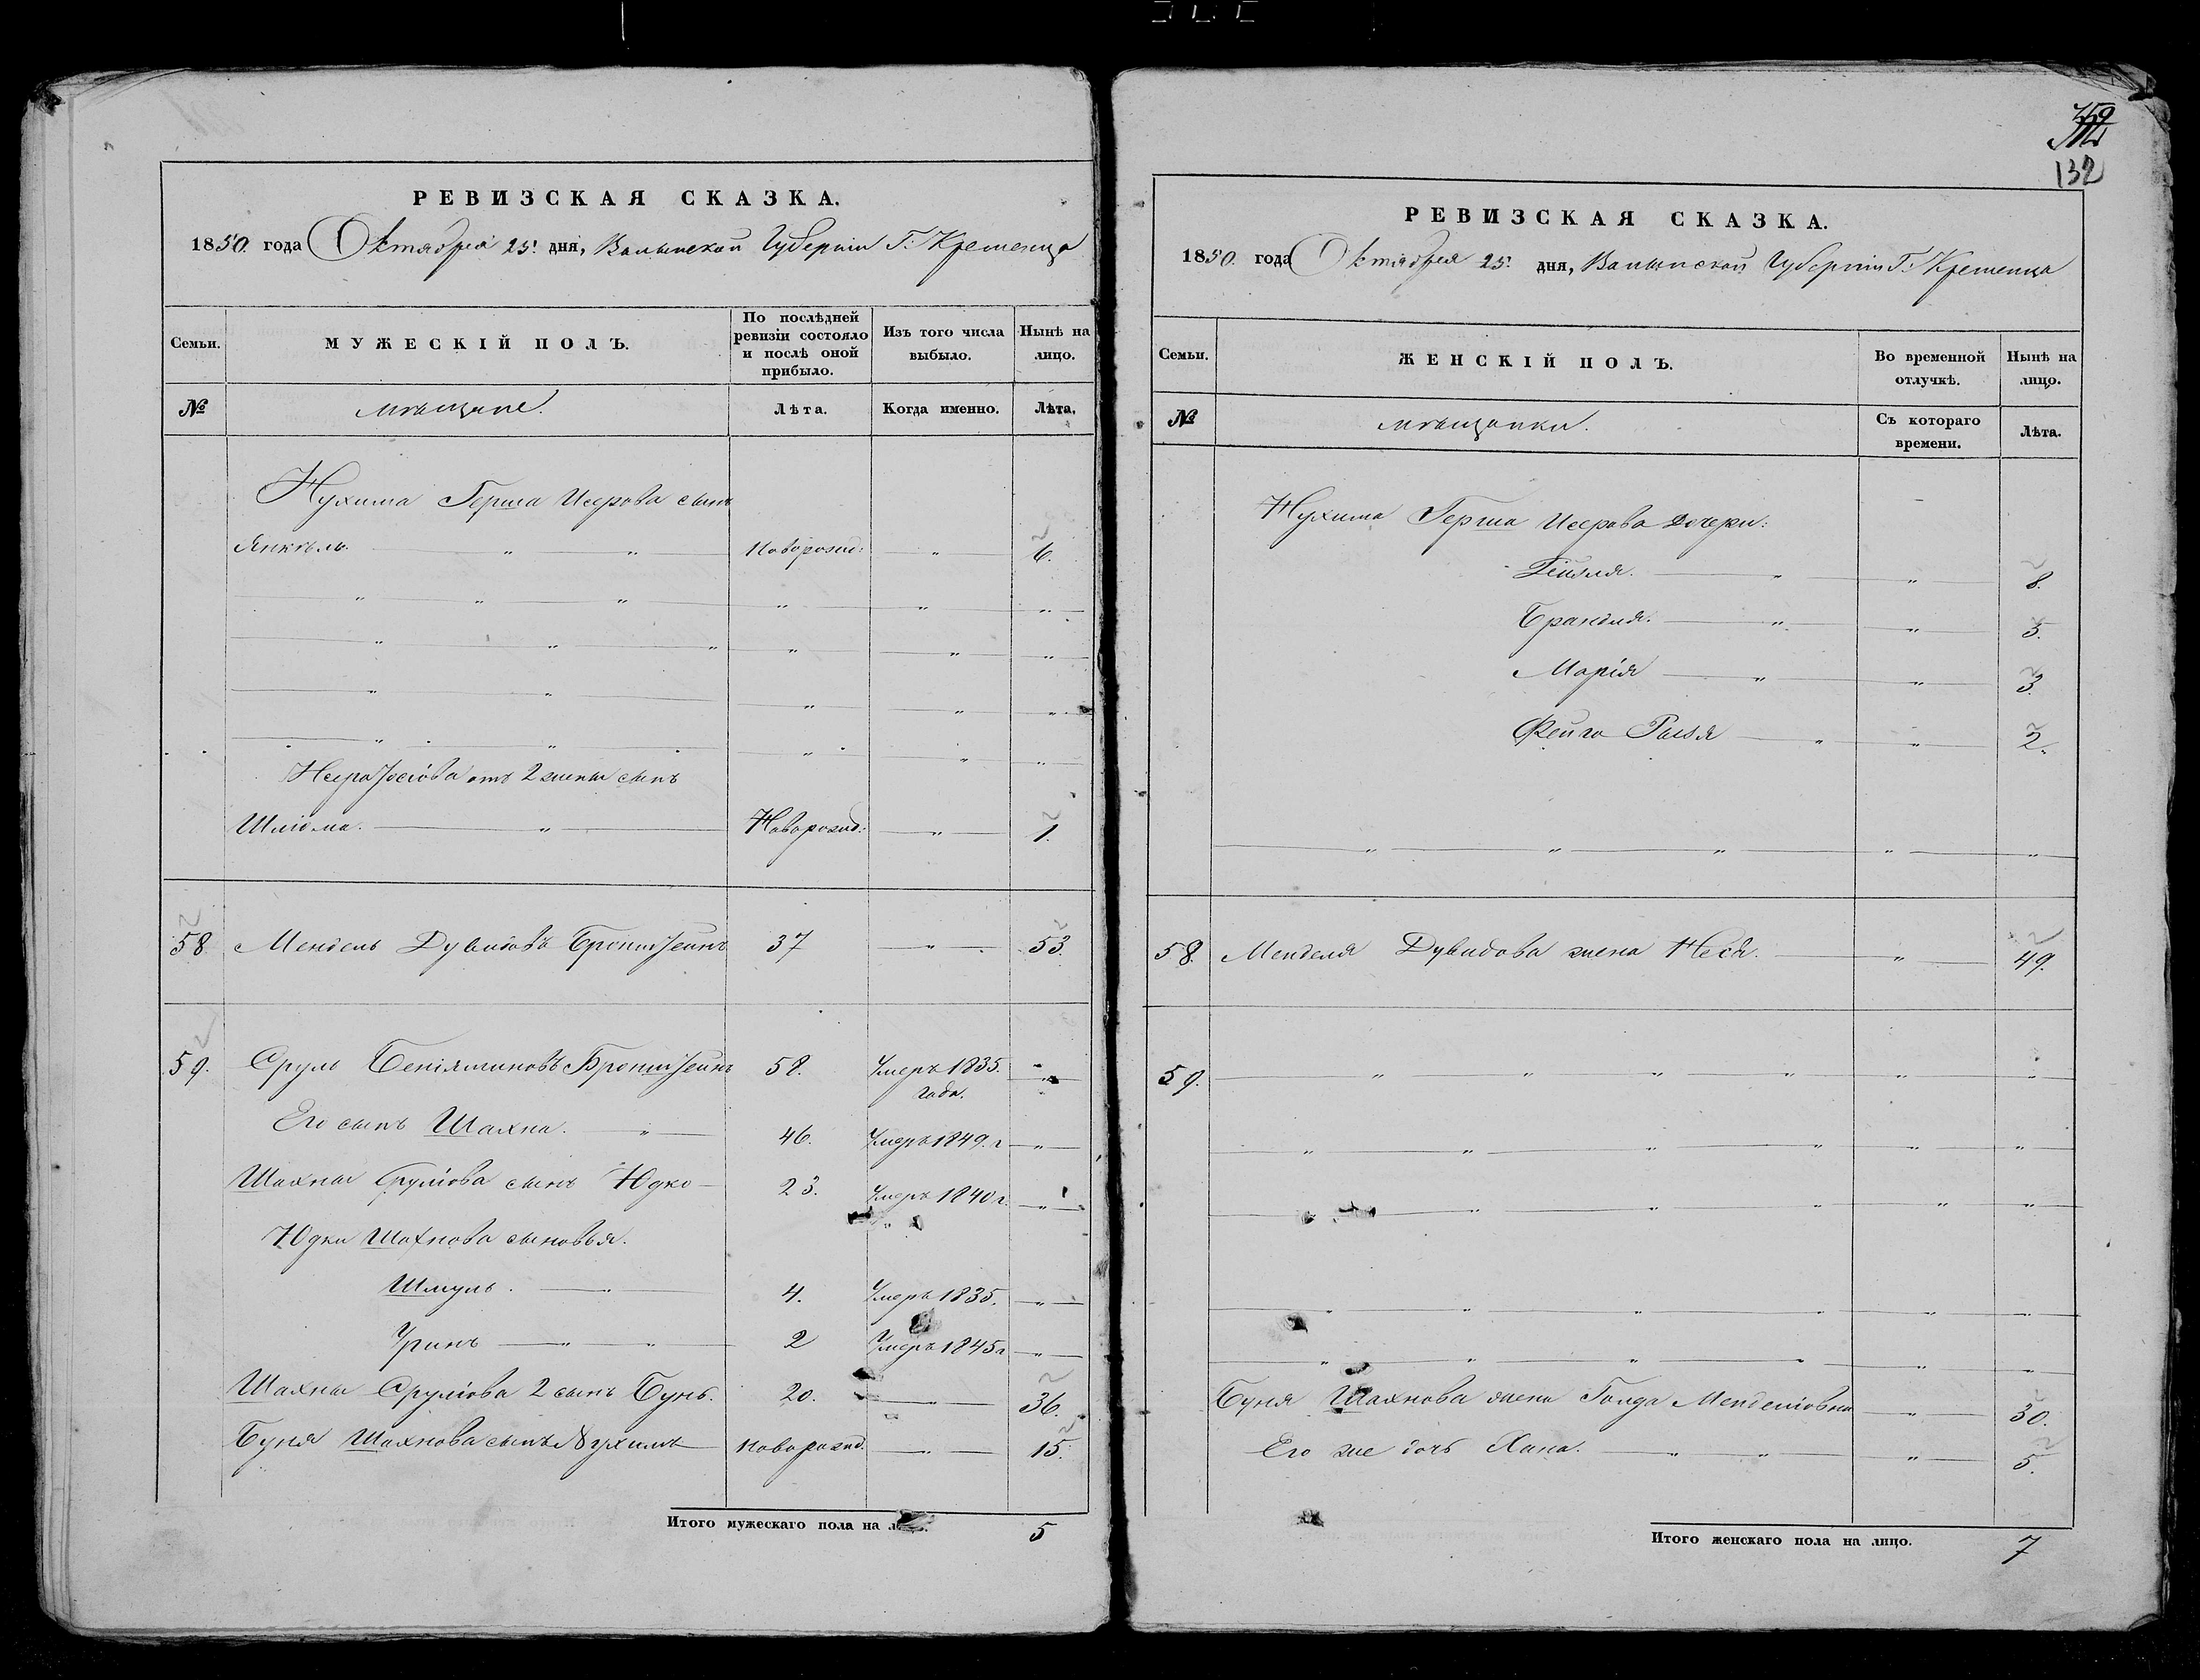 РЕВИЗСКАЯ СКАЗКА.
1850. года Октября 25. дня, Волынской Губернiи Г: Кременца
Семьи. МУЖЕСКІЙ ПОЛЪ. По послѣдней ревизіи состояло и послѣ оной прибыло. Изъ того числа выбыло. Нынѣ на лицо.
№ мѣщане. Лѣта. Когда именно. Лѣта.
Нухима Герша Исерова сынъ
Янкель. " " Новорожд: " 6.
Шліома. " Новорожд: " 1.
58 Мендель Дувидовъ Бронштейнъ 37 " 53.
59. Сруль Беніяминовъ Бронштейнъ 58. Умеръ 1835. года. "
Его сынъ Шахна. " 46. Умеръ 1849. г "
Шахны Сруліова сынъ Юдко 23. Умеръ 1840 г. "
Юдки Шахнова сыновья.
Шмуль. 4. Умеръ 1835. "
2 Умеръ 1845 г "
Шахны Сруліова 2 сынъ Бунь. 20. " 36.
Буня Шахнова сынъ Нухимъ Новорожд. " 15.
Итого мужескаго пола на 5
359
132
РЕВИЗСКАЯ СКАЗКА.
1850. года Октября 25. дня, Волынской Губерніи Г: Кременца
Семьи. ЖЕНСКІЙ ПОЛЪ. Во временной отлучкѣ. Нынѣ на лицо.
№ мѣщанки. Съ котораго времени. Лѣта.
Нухима Герша Исерова дочери:
Рейзля. " " 8.
Брандля. " " 5.
Марія " " 3.
Фейга Рызя " " 2.
58. Менделя Дувидова жена Неся. " 49.
59. " " " " " "
Буня Шахнова жена Голда Менделіовна " 30.
Его же дочь Хана. " " " 5.
Итого женскаго пола на лицо. 7